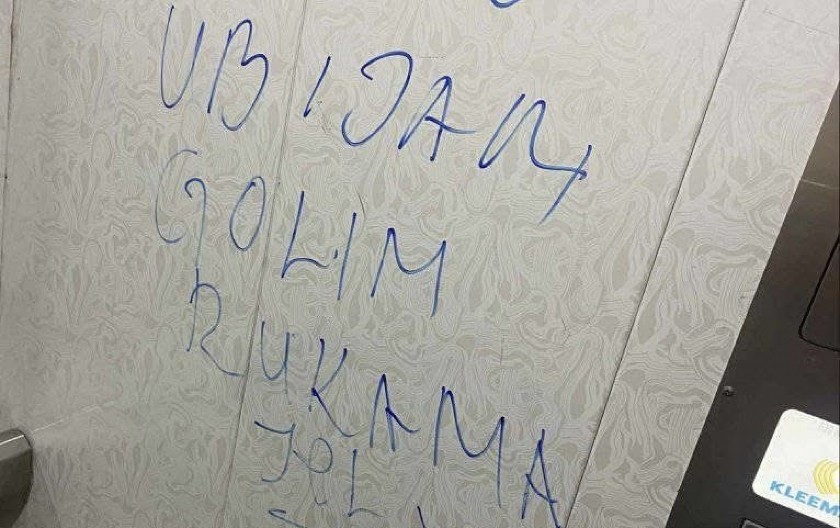 UBIJAM
GOLIM
RUKAMA
JOL
KLEEM